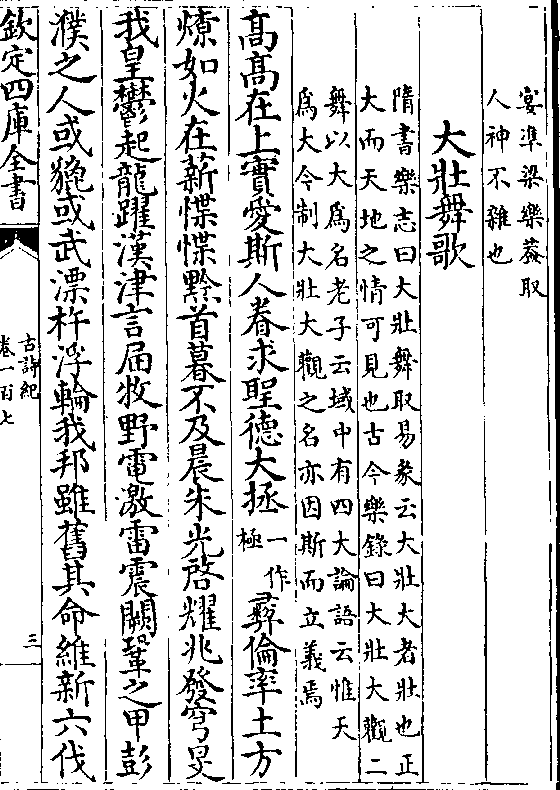 宴準梁樂蓋取
人神不雜也
大壯舞歌
隋書樂志曰大壯舞取易彖云大壯大者壯也正
大而天地之情可見也古今樂錄曰大壯大觀二
舞以大為名老子云域中有四大論語云惟天
為大今制大壯大觀之名亦因斯而立義焉
高高在上實愛斯人眷求聖德大拯一作極彛倫率土方
燎如火在薪惵惵黔首暮不及晨朱光啓耀兆發穹旻
我皇鬱起龍躍漢津言屆牧野電激雷震闕鞏之甲彭
濮之人或貔或武漂杵浮輪我邦雖舊其命維新六伐
欽定四庫全書
古詩紀
卷一百七
三